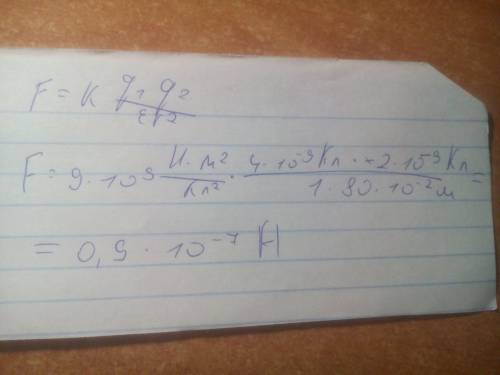 F = K q₁ q₂ / εr²
F = 9 · 10⁹ Н · м² / Кл² · 4 · 10⁻⁹ Кл · 2 · 10⁻⁹ Кл / 1 · 90 · 10⁻² м =
= 0,9 · 10⁻⁷ Н